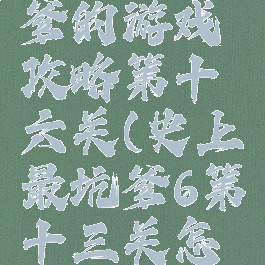 爹的游戏
攻略第十
六关(史上
最坑爹6第
十三关怎